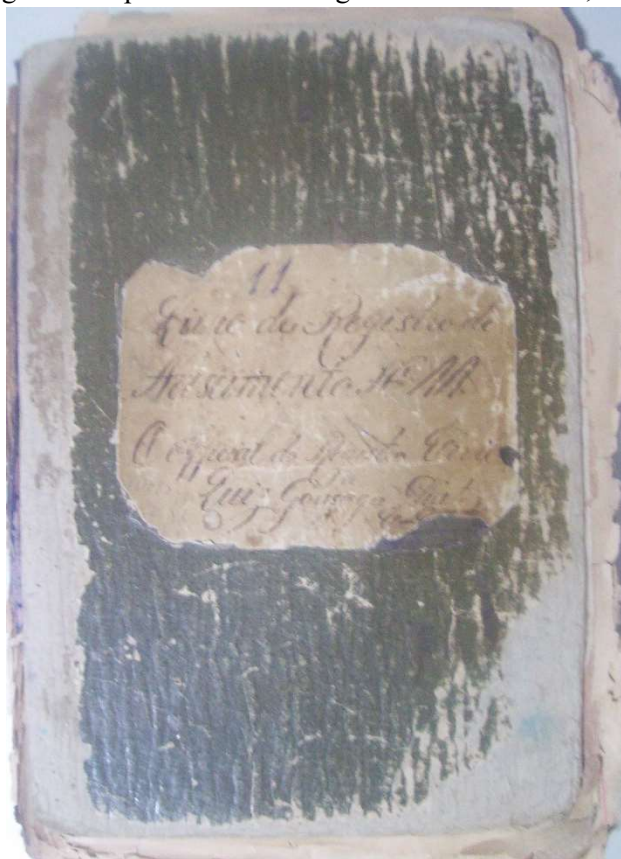 11
Livro de Registro de
Nascimento Nº 11.
O official do Registro Civil
Luiz Gonzaga